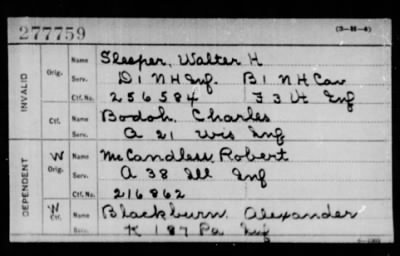 277759 (3-H-4)
INVALID Orig. Name Sleeper, Walter H
Serv. D 1 N H Inf. B 1 N H Cav
Ctf. No. 256584 F 3 Vt Inf
Ctf. Name Bodoh, Charles
Serv. A 21 Wis Inf
DEPENDENT W Orig. Name McCandless, Robert
Serv. A 38 Ill Inf
Ctf. No. 216862
W Ctf. Name Blackburn, Alexander
Serv. K 187 Pa Inf